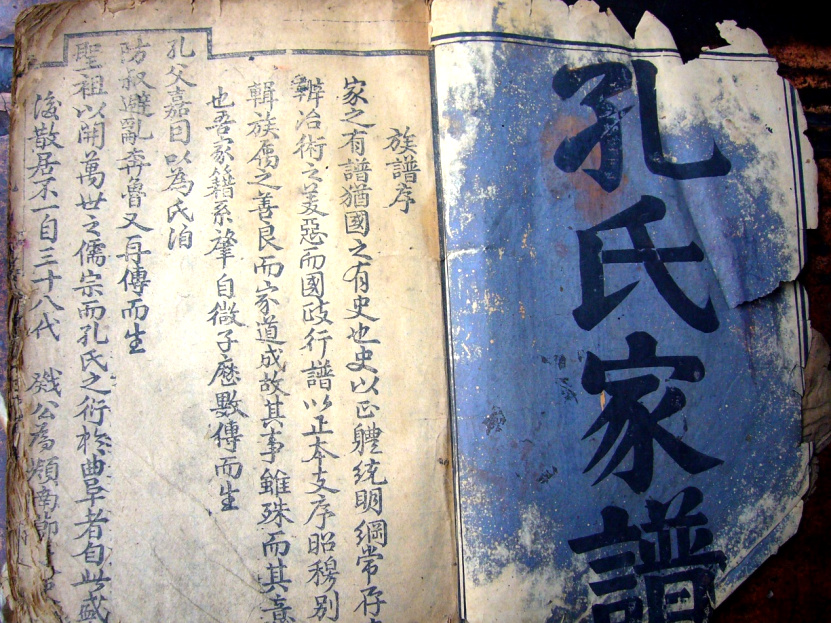 孔氏家譜
族譜序
家之有譜猶國之有史也史以正體統明綱常存
辨治術之美惡而國政行譜以正本支序昭穆別
輯族属之善良而家道成故其事雖殊而其意
也吾家籍系肇自微子歷數傳而生
孔父嘉因以為氏洎
防叔避亂奔魯又再傳而生
聖祖以開萬世之儒宗而孔氏之衍於曲阜者自此盛
後散居不一自三十八代 戣公為嶺南節